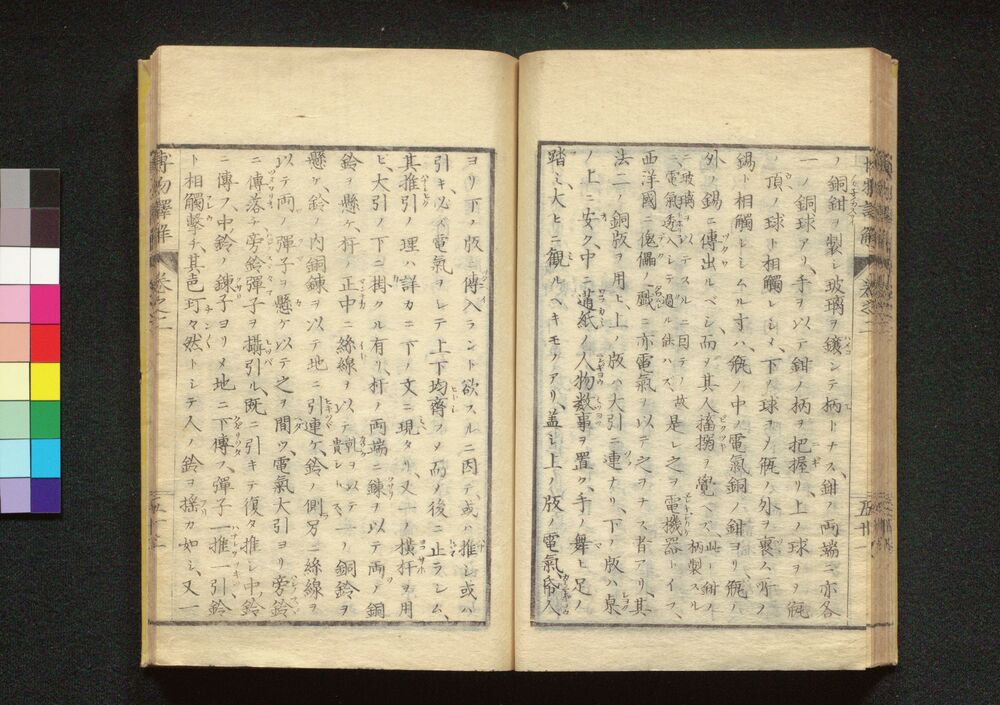 ノ銅鉗ヲ製シ玻璃ヲ鑲シテ柄トナス、鉗ノ両端ニ亦各
一ノ銅球アリ、手ヲ以テ鉗ノ柄ヲ把握リ上ノ球ヲヲ瓶
ノ頂ノ球ト相觸レシメ、下ノ球ヲノ瓶ノ外ヲ裹ム所ノ
錫ト相觸レシムル寸ハ、瓶ノ中ノ電氣銅ノ鉗ヨリ、瓶ノ
外ノ錫ニ傳出ルベシ、而ヲ其人搐搦ヲ覺ヘズ、此レ鉗ノ柄製スル
ニ玻璃ヲ以テスルニ因テノ故、電氣透レテ過ル能ハズ、是レ之ヲ電機器トイフ、
西洋國ニ傀儡ノ戲ニ亦電氣ノ以テ之ヲナス者アリ、其
法二ノ銅版ヲ用ヒ、上ノ版ハ大引ニ連ナリ、下ノ版ハ桌
ノ上ニ安ク、中ニ通紙ノ人物数事ヲ置ク、手ノ舞ヒ足ノ
踏ミ、大ヒニ観ルヘキモノアリ、蓋シ上ノ版ノ電氣帋人
ヨリ下ノ版ニ傳入ラント欲スルニ因テ、或ハ推シ或ハ
引キ、必ズ電氣ヲシテ上下均齊フシメ而ノ後ニ止ラシム、
其推引ノ理ハ詳カニ下ノ文ニ現タリ、又一ノ横杆ヲ用
ヒ、大引ノ下ニ掛クル有リ、杆ノ両端ニ鍊ヲ以テ両ノ銅
鈴ヲ懸ケ、杆ノ正中ニ絲線ヲ以テ一ノ銅鈴ヲ
懸ケ、鈴ノ内銅鍊ヲ以テ地ニ引連ケ、鈴ノ側另ニ絲線ヲ
以テ両ノ彈子ヲ懸ケ以テ之ヲ間ツ、電氣大引ヨリ旁鈴
ニ傳落チ、旁鈴彈子ヲ攝引ル、既ニ引キテ復タ推シ、中鈴
ニ傳フ、中鈴ノ鍊子ヨリメ地ニ下傳フ、彈子一推一引、鈴
ト相觸擊チ、其声玎々然トシテ人ノ鈴ヲ揺カ如シ、又一
博物譯解 巻之二